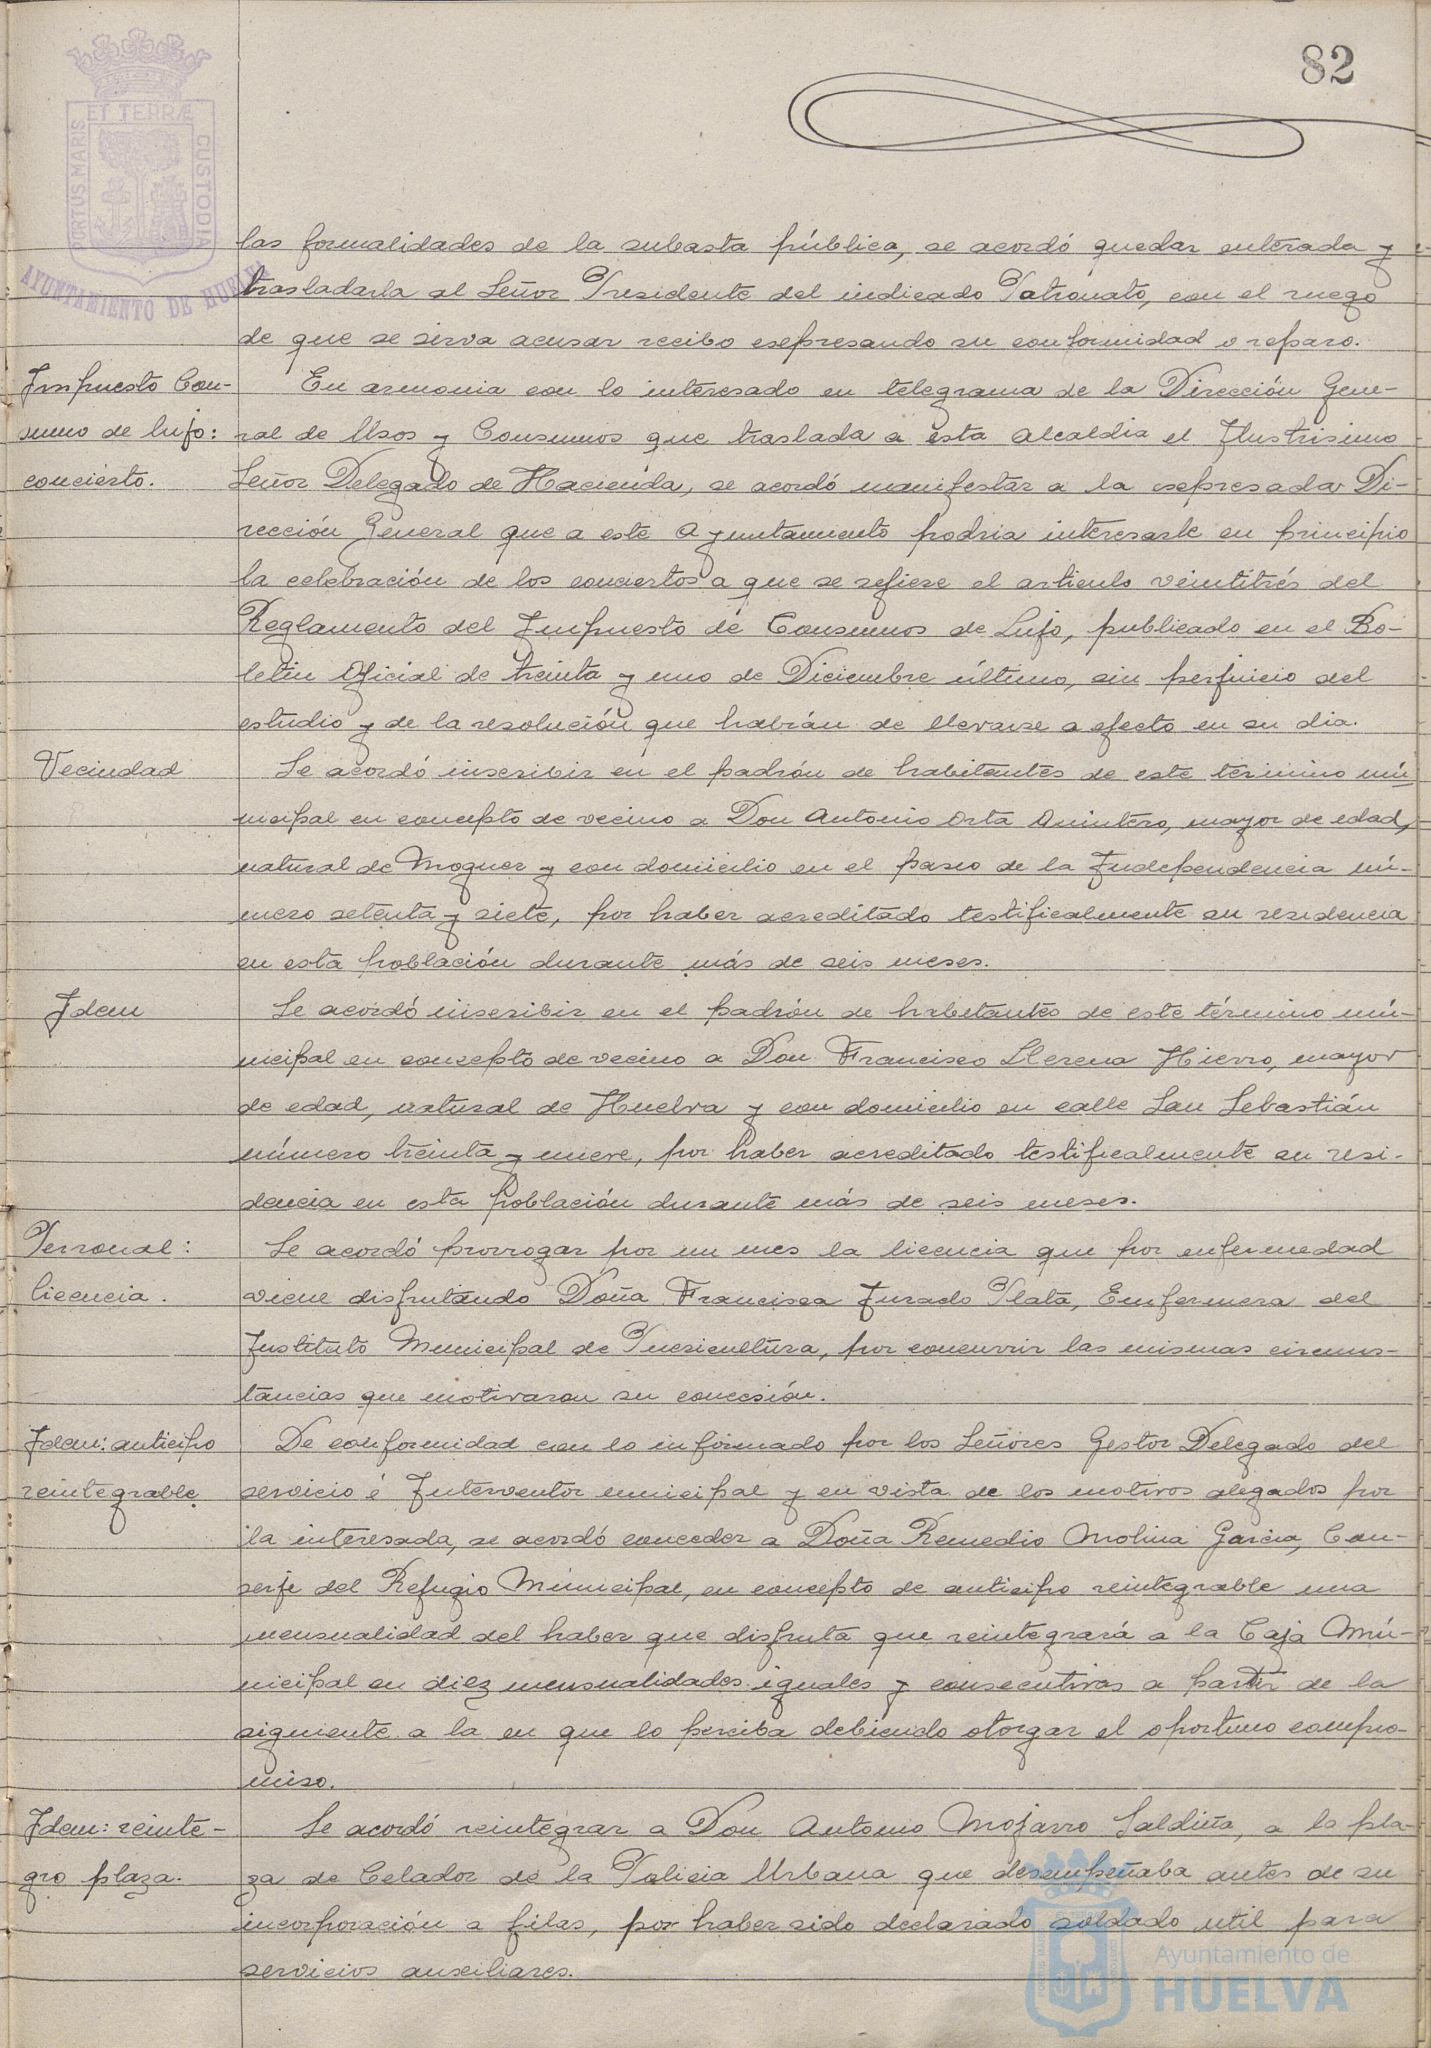 82
ET TERRÆ
PORTUS MARIS
CUSTODIA
AYUNTAMIENTO DE HUELVA
las formalidades de la subasta pública, se acordó quedar enterada y
trasladarla al Señor Presidente del indicado Patronato, con el ruego
de que se sirva acusar recibo expresando su conformidad o reparo.
Impuesto Con-
sumo de lujo:
concierto.
En armonia con lo interesado en telegrama de la Dirección Gene-
ral de Usos y Consumos que traslada a esta Alcaldia el Ilustrisimo
Señor Delegado de Hacienda, se acordó manifestar a la expresada Di-
rección General que a este Ayuntamiento podria interesarle en principio
la celebración de los conciertos a que se refiere el articulo veintitrés del
Reglamento del Impuesto de Consumos de Lujo, publicado en el Bo-
letin Oficial de treinta y uno de Diciembre último, sin perjuicio del
estudio y de la resolución que habrán de llevarse a efecto en su dia.
Vecindad
Se acordó inscribir en el padrón de habitantes de este término mu
nicipal en concepto de vecino a Don Antonio Orta Quintero, mayor de edad,
natural de Moguer y con domicilio en el paseo de la Independencia nú-
mero setenta y siete, por haber acreditado testificalmente su residencia
en esta población durante más de seis meses.
Idem
Se acordó inscribir en el padrón de habitantes de este término mu-
nicipal en concepto de vecino a Don Francisco Llerena Hierro, mayor
de edad, natural de Huelva y con domicilio en calle San Sebastián
número treinta y nueve, por haber acreditado testificalmente su resi-
dencia en esta población durante más de seis meses.
Personal:
licencia.
Se acordó prorrogar por un mes la licencia que por enfermedad
viene disfrutando Doña Francisca Jurado Plata, Enfermera del
Instituto Municipal de Puericultura, por concurrir las mismas circuns-
tancias que motivaron su concesión.
Idem: anticipo
reintegrable
De conformidad con lo informado por los Señores Gestor Delegado del
servicio é Interventor municipal y en vista de los motivos alegados por
la interesada, se acordó conceder a Doña Remedio Molina Garcia, Con-
serje del Refugio Municipal, en concepto de anticipo reintegrable una
mensualidad del haber que disfruta que reintegrará a la Caja Mu-
nicipal en diez mensualidades iguales y consecutivas a partir de la
siguiente a la en que lo perciba debiendo otorgar el oportuno compro-
miso.
Idem: reinte-
gro plaza.
Se acordó reintegrar a Don Antonio Mojarro Saldiña, a la pla-
za de Celador de la Policia Urbana que desempeñaba antes de su
incorporación a filas, por haber sido declarado soldado util para
servicios auxiliares.
Ayuntamiento de
HUELVA